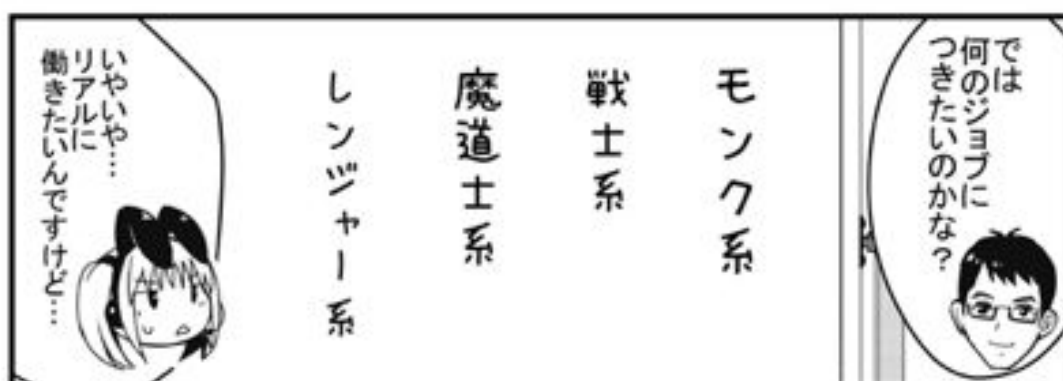 では
何のジョブに
つきたいのかな？
モンク系
戦士系
魔道士系
レンジャー系
いやいや…
リアルに
働きたいんですけど…